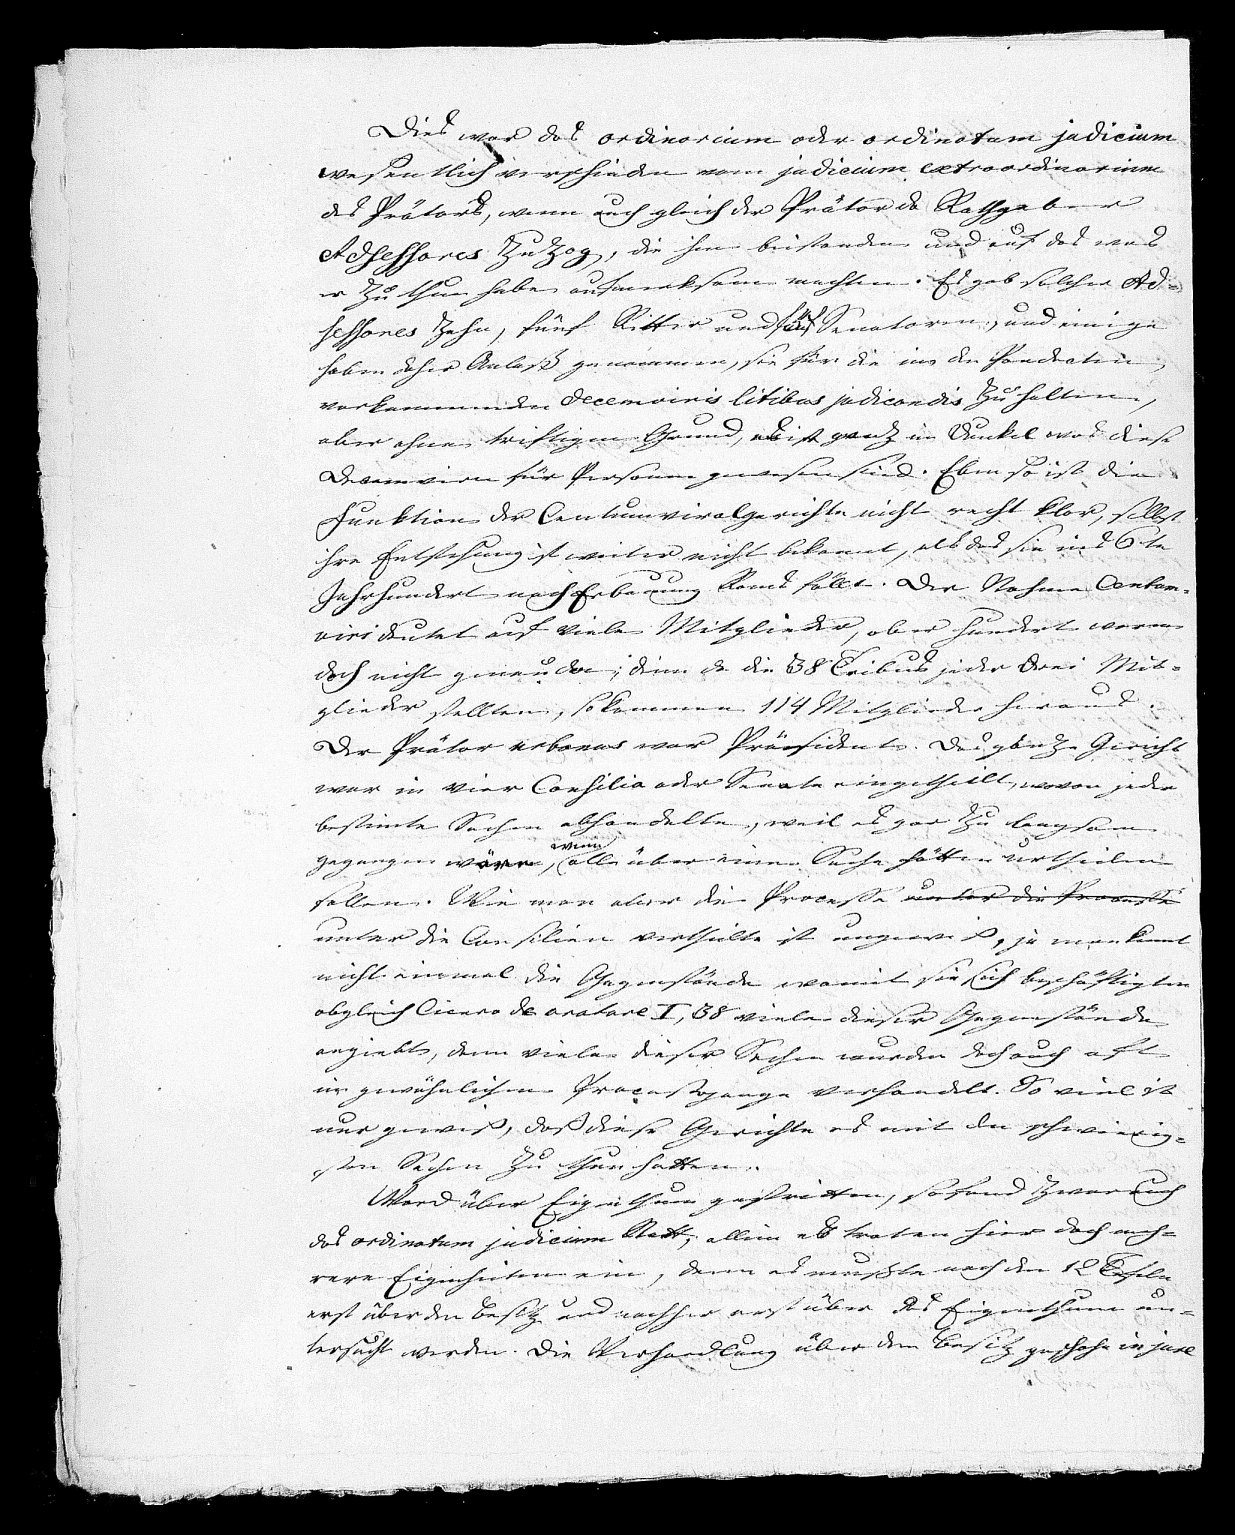 Dies war das ordinarium oder ordinatum judicium
wesentlich verschieden vom judicium extraordinarium
des Prätors, wenn auch gleich der Prätor da Rathgeber
Adsessores zuzog, die ihm beistanden und auf das was
er zu thun habe aufmerksam machten. Es gab solcher Ad=
sessores zehn, fünf Ritter und fünf Senatoren, und einige
haben daher Anlaß genommen, sie für die in den Pandecten
vorkommenden decemviris litibus judicandis zu halten,
aber ohne triftigen Grund, es ist ganz im Dunkel was diese
Decemvirn für Personen gewesen sind. Eben so ist die
Funktion der Centumviralgerichte nicht recht klar, selbst
ihre Entstehung ist weiter nicht bekannt, als daß sie ins 6te
Jahrhundert nach Erbauung Roms fällt. Der Nahme Centum=
viri deutet auf viele Mitglieder, aber hundert waren
doch nicht genau da; denn da die 38 Tribus jeder drei Mit=
glieder stellten, so kommen 114 Mitglieder heraus.
Der Prätor urbanus war Präsident. Das ganze Gericht
war in vier Consilia oder Senate eingetheilt, wovon jeder
bestimte Sachen abhandelte, weil es gar zu langsam
gegangen wäre, wenn alle über eine Sache hätten urtheilen
sollen. Wie man aber die Processe unter die Processe
unter die Consilien vertheilte ist ungewiß, ja man kennt
nicht einmal die Gegenstände womit sie sich beschäftigten
obgleich Cicero de oratore I, 38 viele dieser Gegenstände
angiebt, denn viele dieser Sachen wurden doch auch oft
im gewöhnlichen Proceßgange verhandelt. So viel ist
nur gewiß, daß diese Gerichte es mit den schwierig=
sten Sachen zu thun hatten.
Ward über Eigenthum gestritten, so fand zwar auch
das ordinatum judicium Statt, allein es traten hier doch meh=
rere Eigenheiten ein, denn es mußte nach den 12 Tafeln
erst über den Besitz und nachher erst über das Eigenthum un=
tersucht werden. Die Verhandlung über den Besitz geschahe in jure